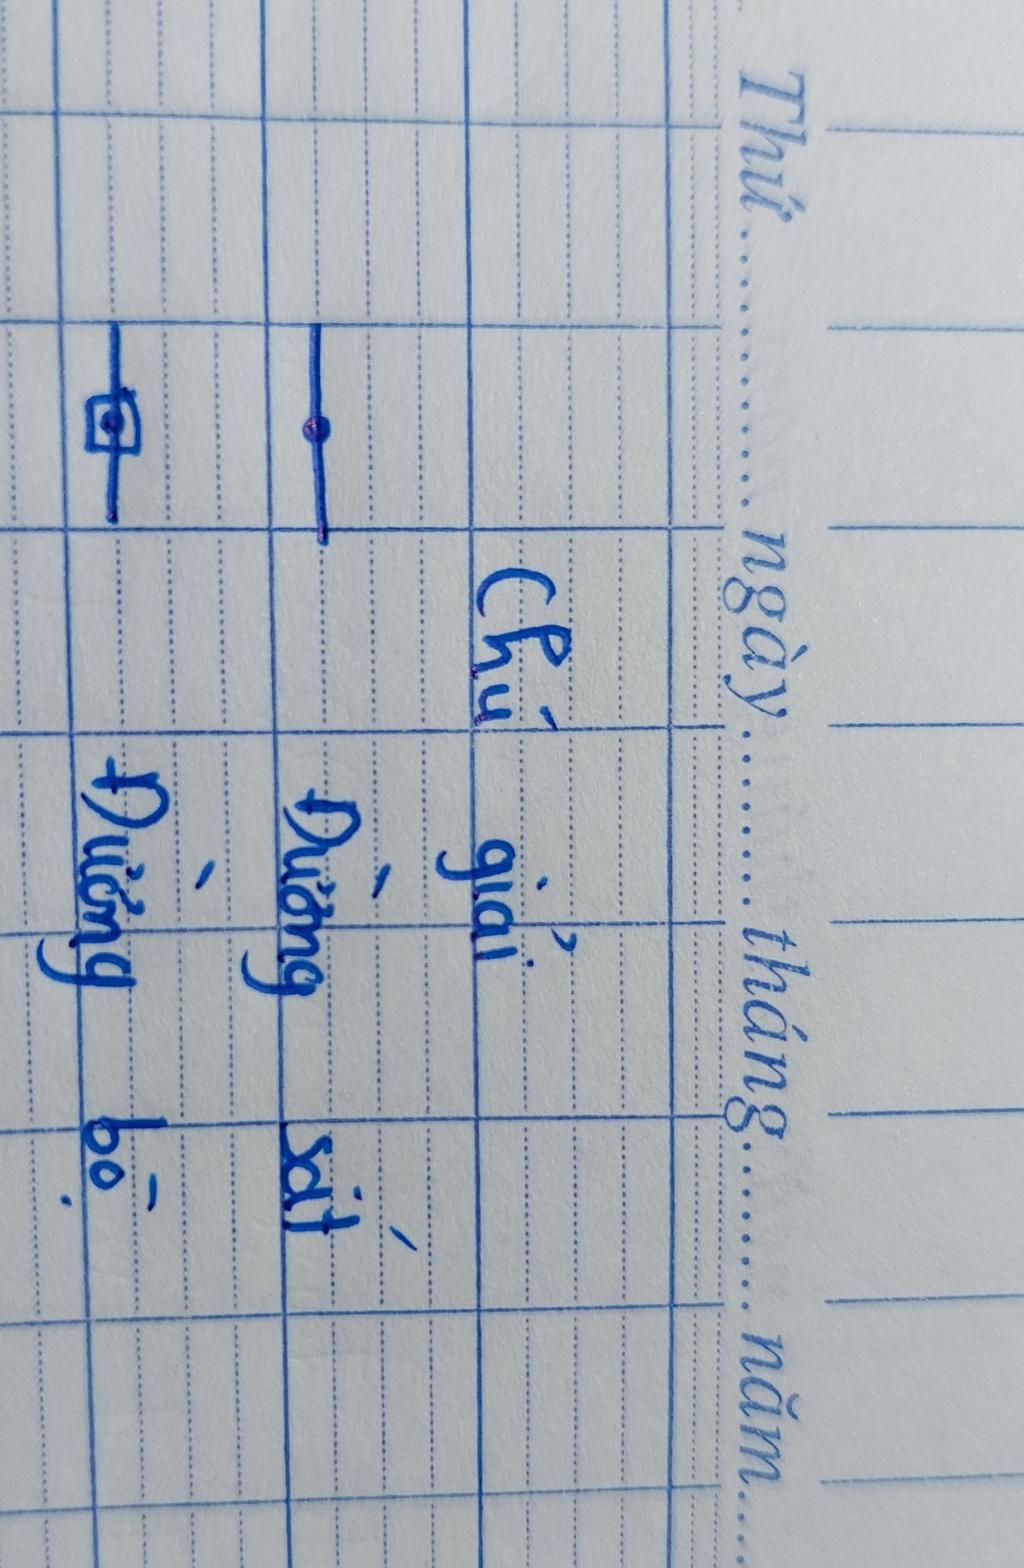 Thứ.................. ngày............ tháng............ năm......
Chú giải
Đường sắt
Đường bộ